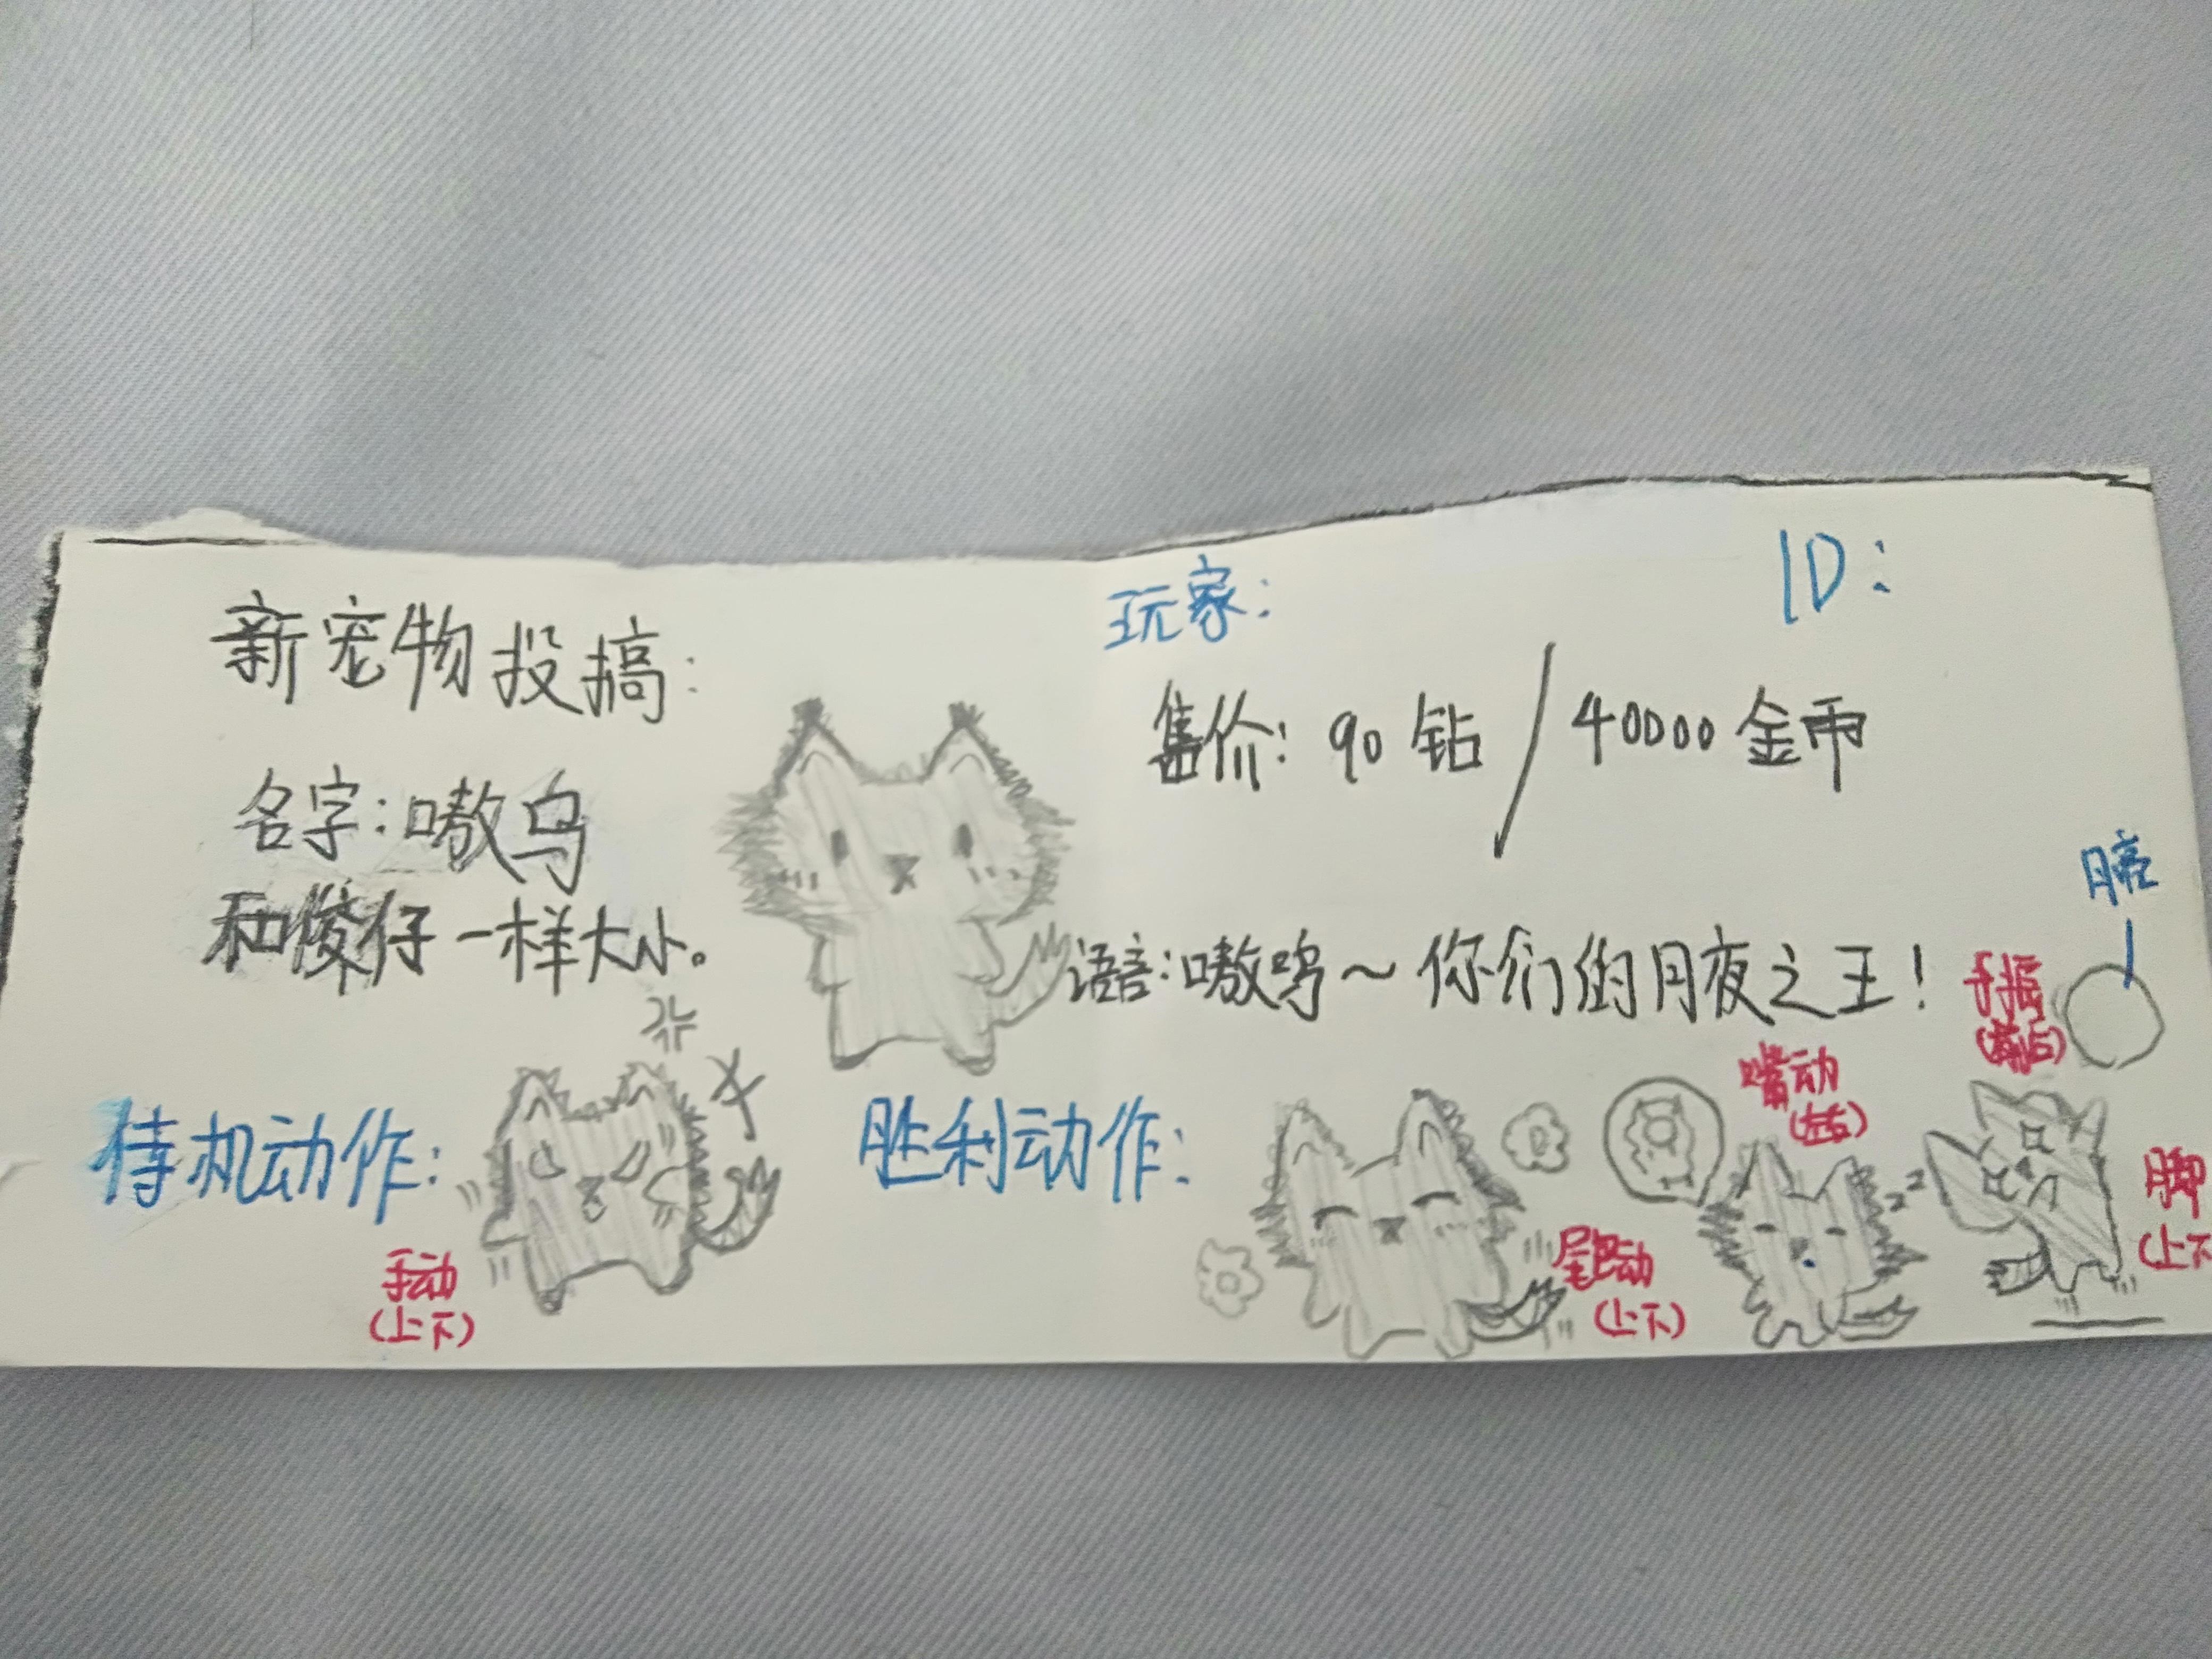 新宠物投搞:
名字:嗷呜
和俊仔一样大小。
玩家:
ID:
售价: 90 钻 / 40000 金币
语言:嗷呜～你们的月夜之王!
月亮
待机动作:
手动
(上下)
胜利动作:
尾巴动
(上下)
嘴动
(左右)
手摇
(前后)
脚
(上下
z z